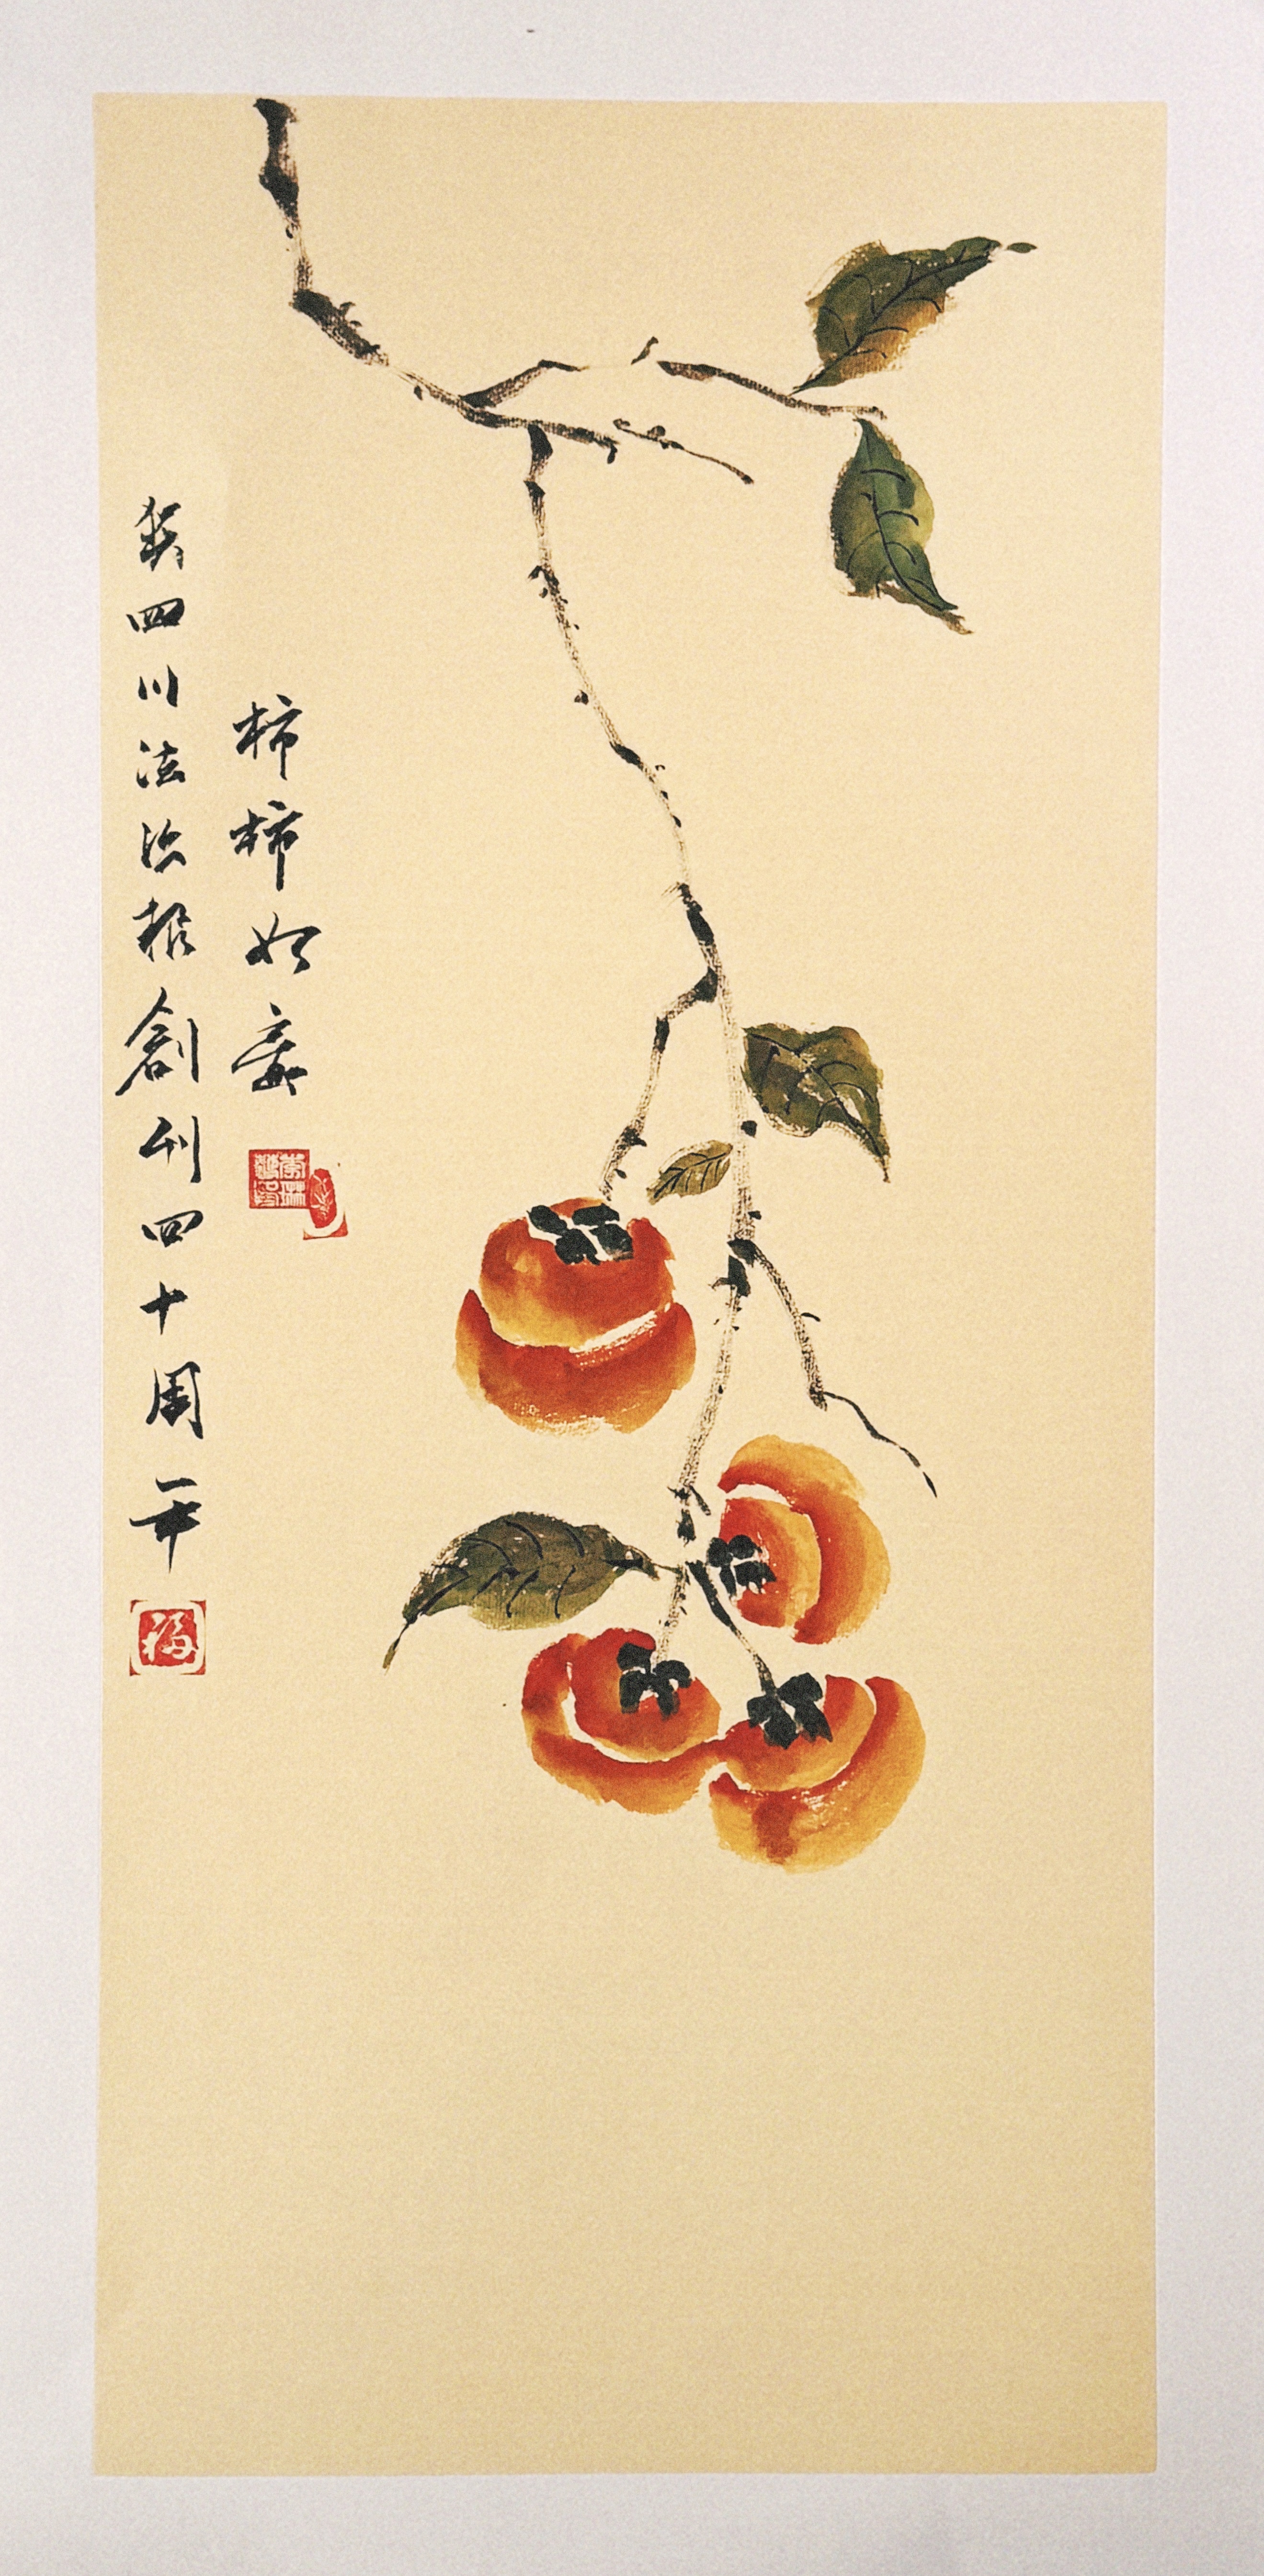 柿柿如意
贺四川法治报创刊四十周年
福